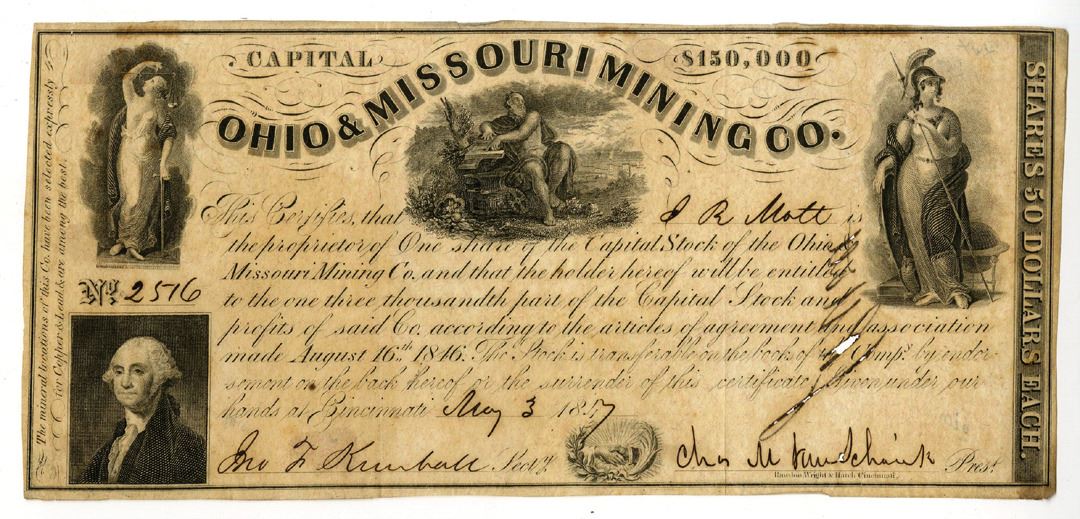 CAPITAL $150,000
OHIO & MISSOURI MINING CO.
The mineral locations of this Co. have been selected expressly
for Copper & Lead & are among the best.
SHARES 50 DOLLARS EACH.
This Certifies, that J R Mott is
the proprietor of One share of the Capital Stock of the Ohio &
Missouri Mining Co. and that the holder hereof will be entitled
No. 2576
to the one three thousandth part of the Capital Stock and
profits of said Co. according to the articles of agreement and association
made August 16th 1846. The Stock is transferable on the books of the Compy. by endor
sement on the back hereof or the surrender of this certificate. Given under our
hands at Cincinnati May 3 1847
Jno F Kimball Secty. Chas M Van Schaick Prest.
Rawdon, Wright & Hatch, Cincinnati.